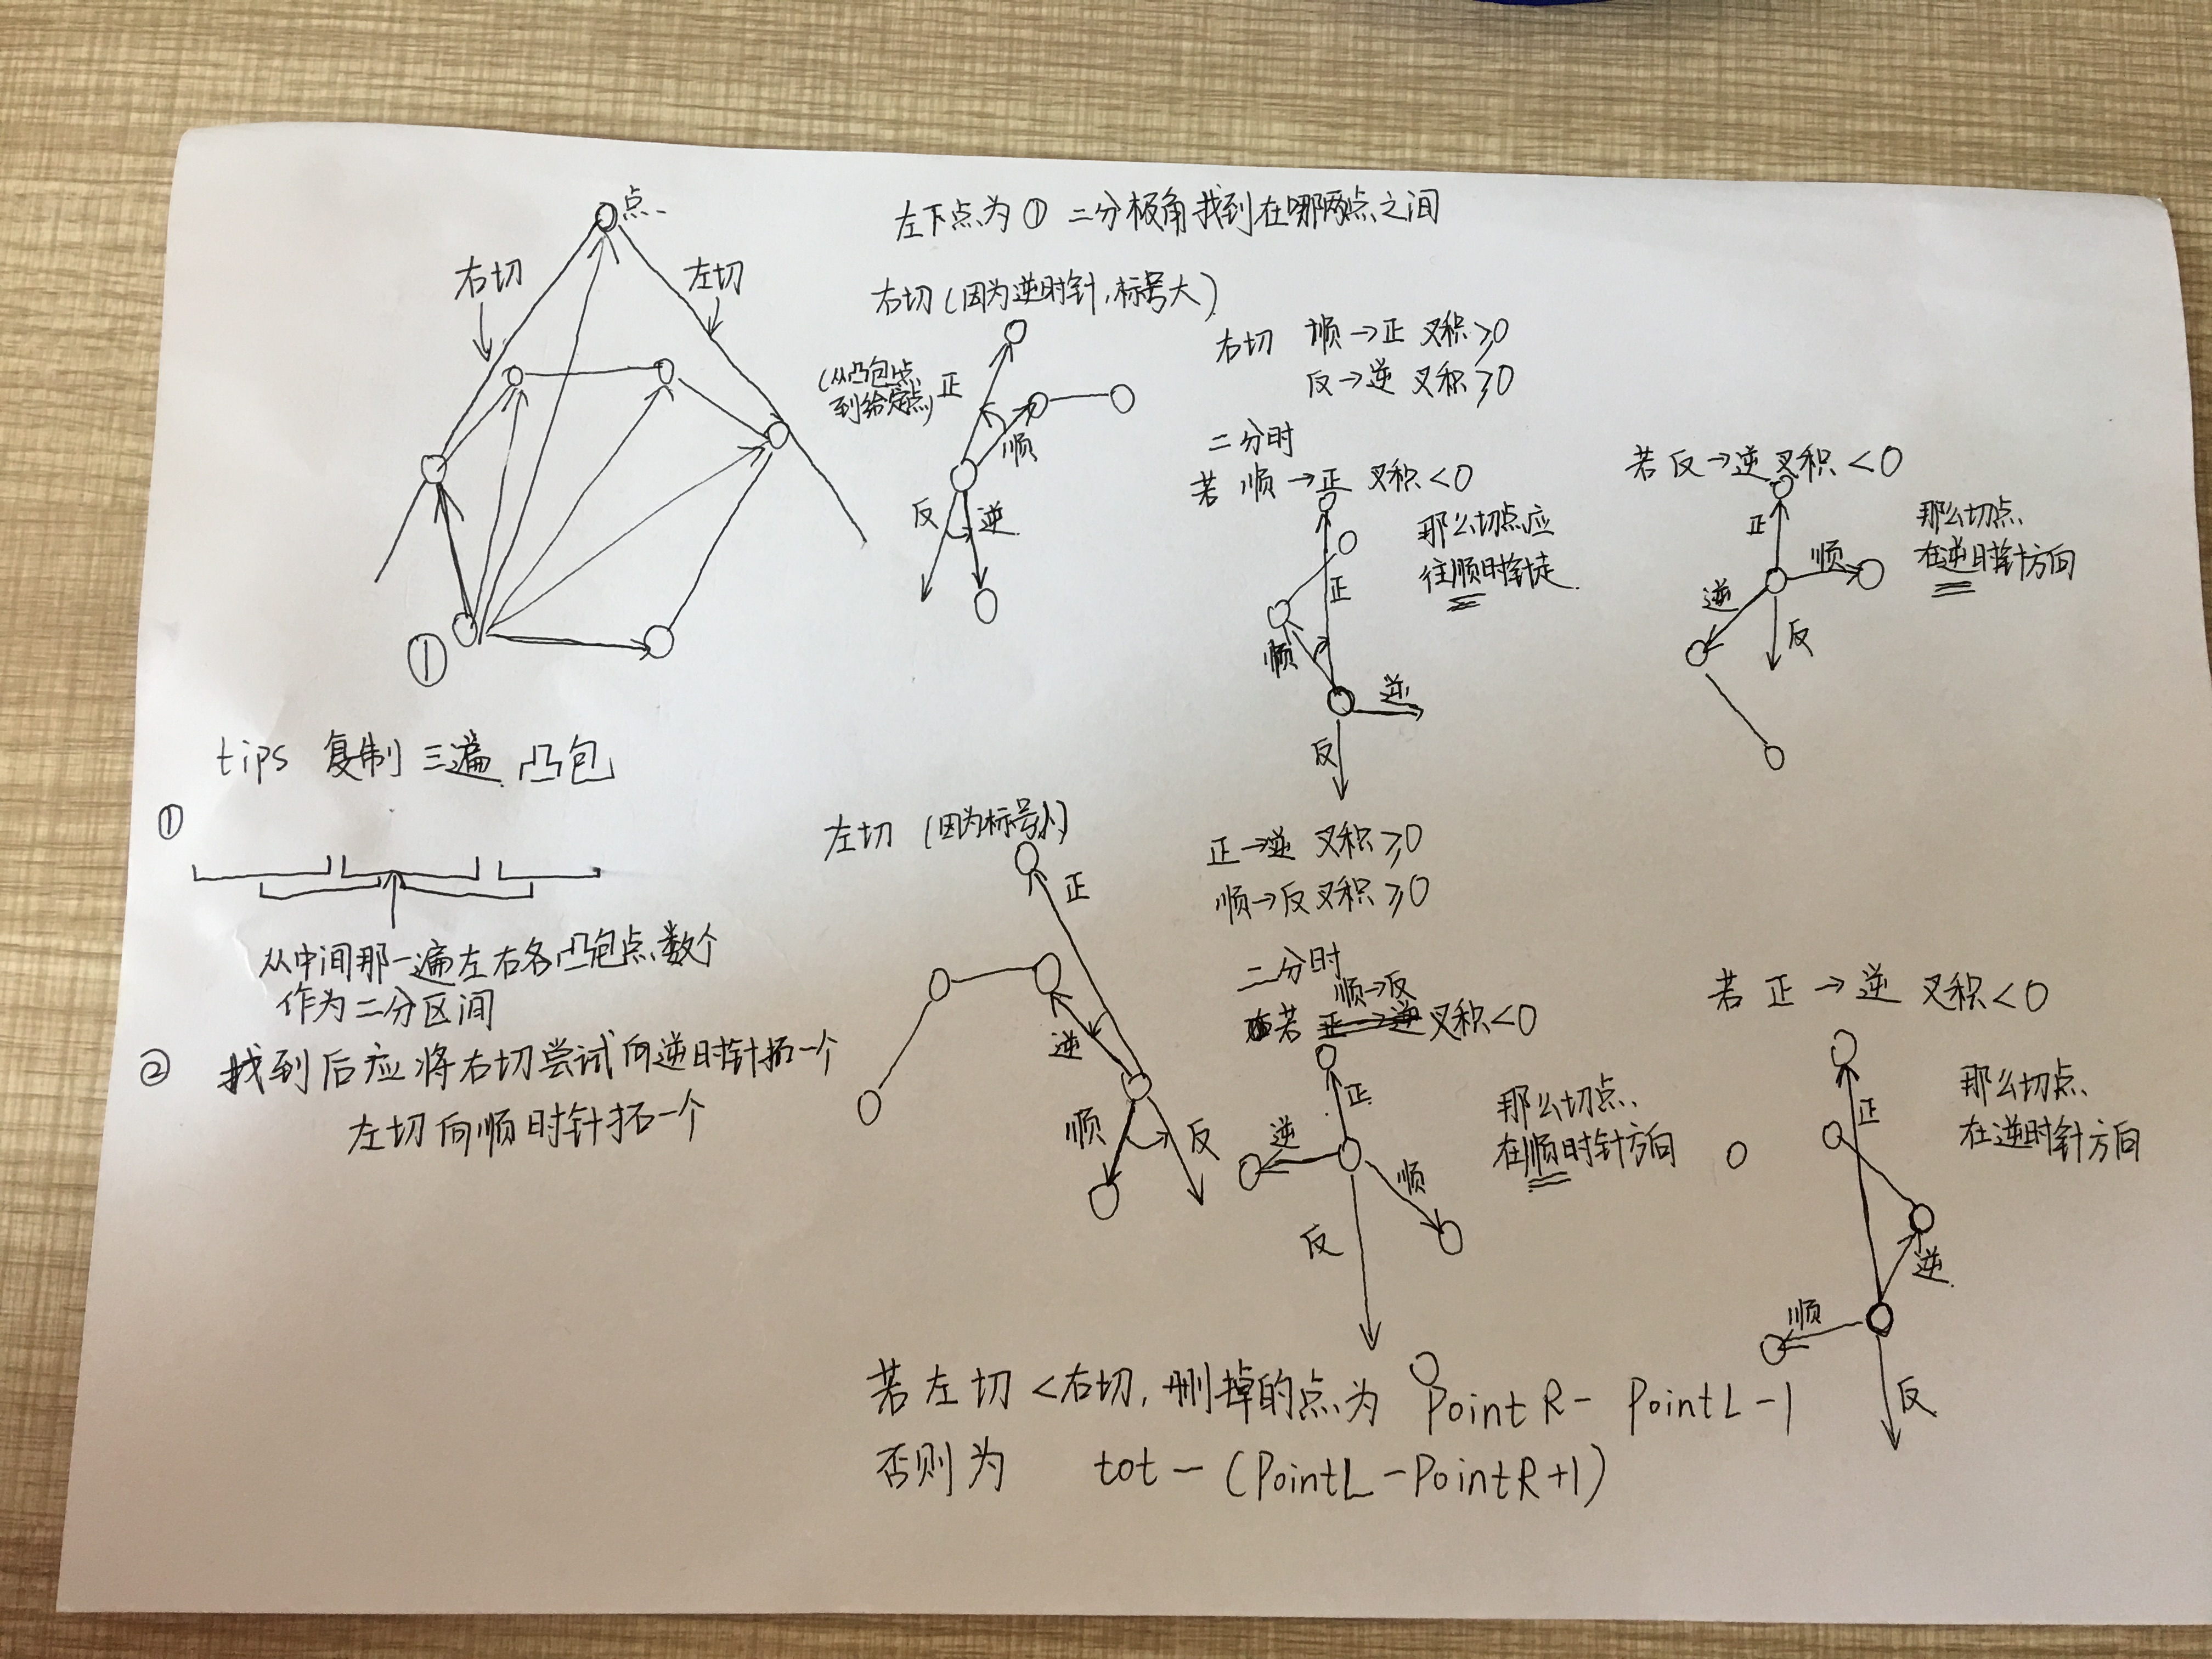 点
右切
左切
①
左下点为① 二分极角找到在哪两点之间
右切(因为逆时针,标号大)
(从凸包点
到给定点)
正
顺
反
逆
右切 顺→正 叉积≥0
反→逆 叉积≥0
二分时
若 顺→正 叉积<0
那么切点应
往顺时针走
正
顺
逆
反
若反→逆叉积<0
那么切点
在逆时针方向
正
顺
逆
反
tips 复制三遍凸包
①
从中间那一遍左右各凸包点数个
作为二分区间
② 找到后应将右切尝试向逆时针拓一个
左切向顺时针拓一个
左切 (因为标号小)
正
逆
顺
反
正→逆 叉积≥0
顺→反 叉积≥0
二分时
顺→反
若 正→逆 叉积<0
那么切点
在顺时针方向
正
逆
顺
反
若 正→逆 叉积<0
那么切点
在逆时针方向
正
逆
顺
反
若左切<右切,删掉的点为 PointR-PointL-1
否则为 tot-(PointL-PointR+1)